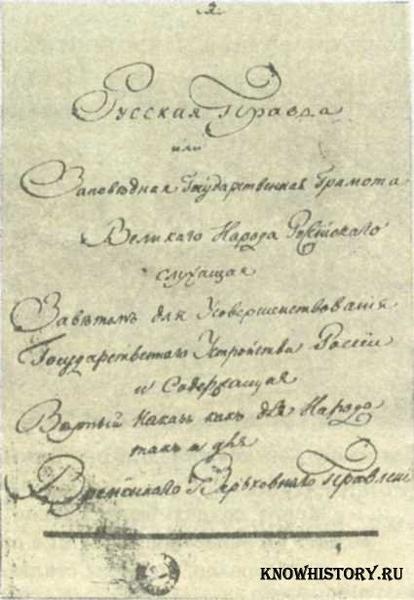 2.
Русская Правда
или
Заповѣдная Государственная Грамота
Великаго Народа Россійскаго
служащая
Завѣтомъ для Усовершенствованія
Государственнаго Устройства Россіи
и Содержащая
Вѣрный Наказъ какъ для Народа
такъ и для
Временнаго Верьховнаго Правлені
KNOWHISTORY.RU